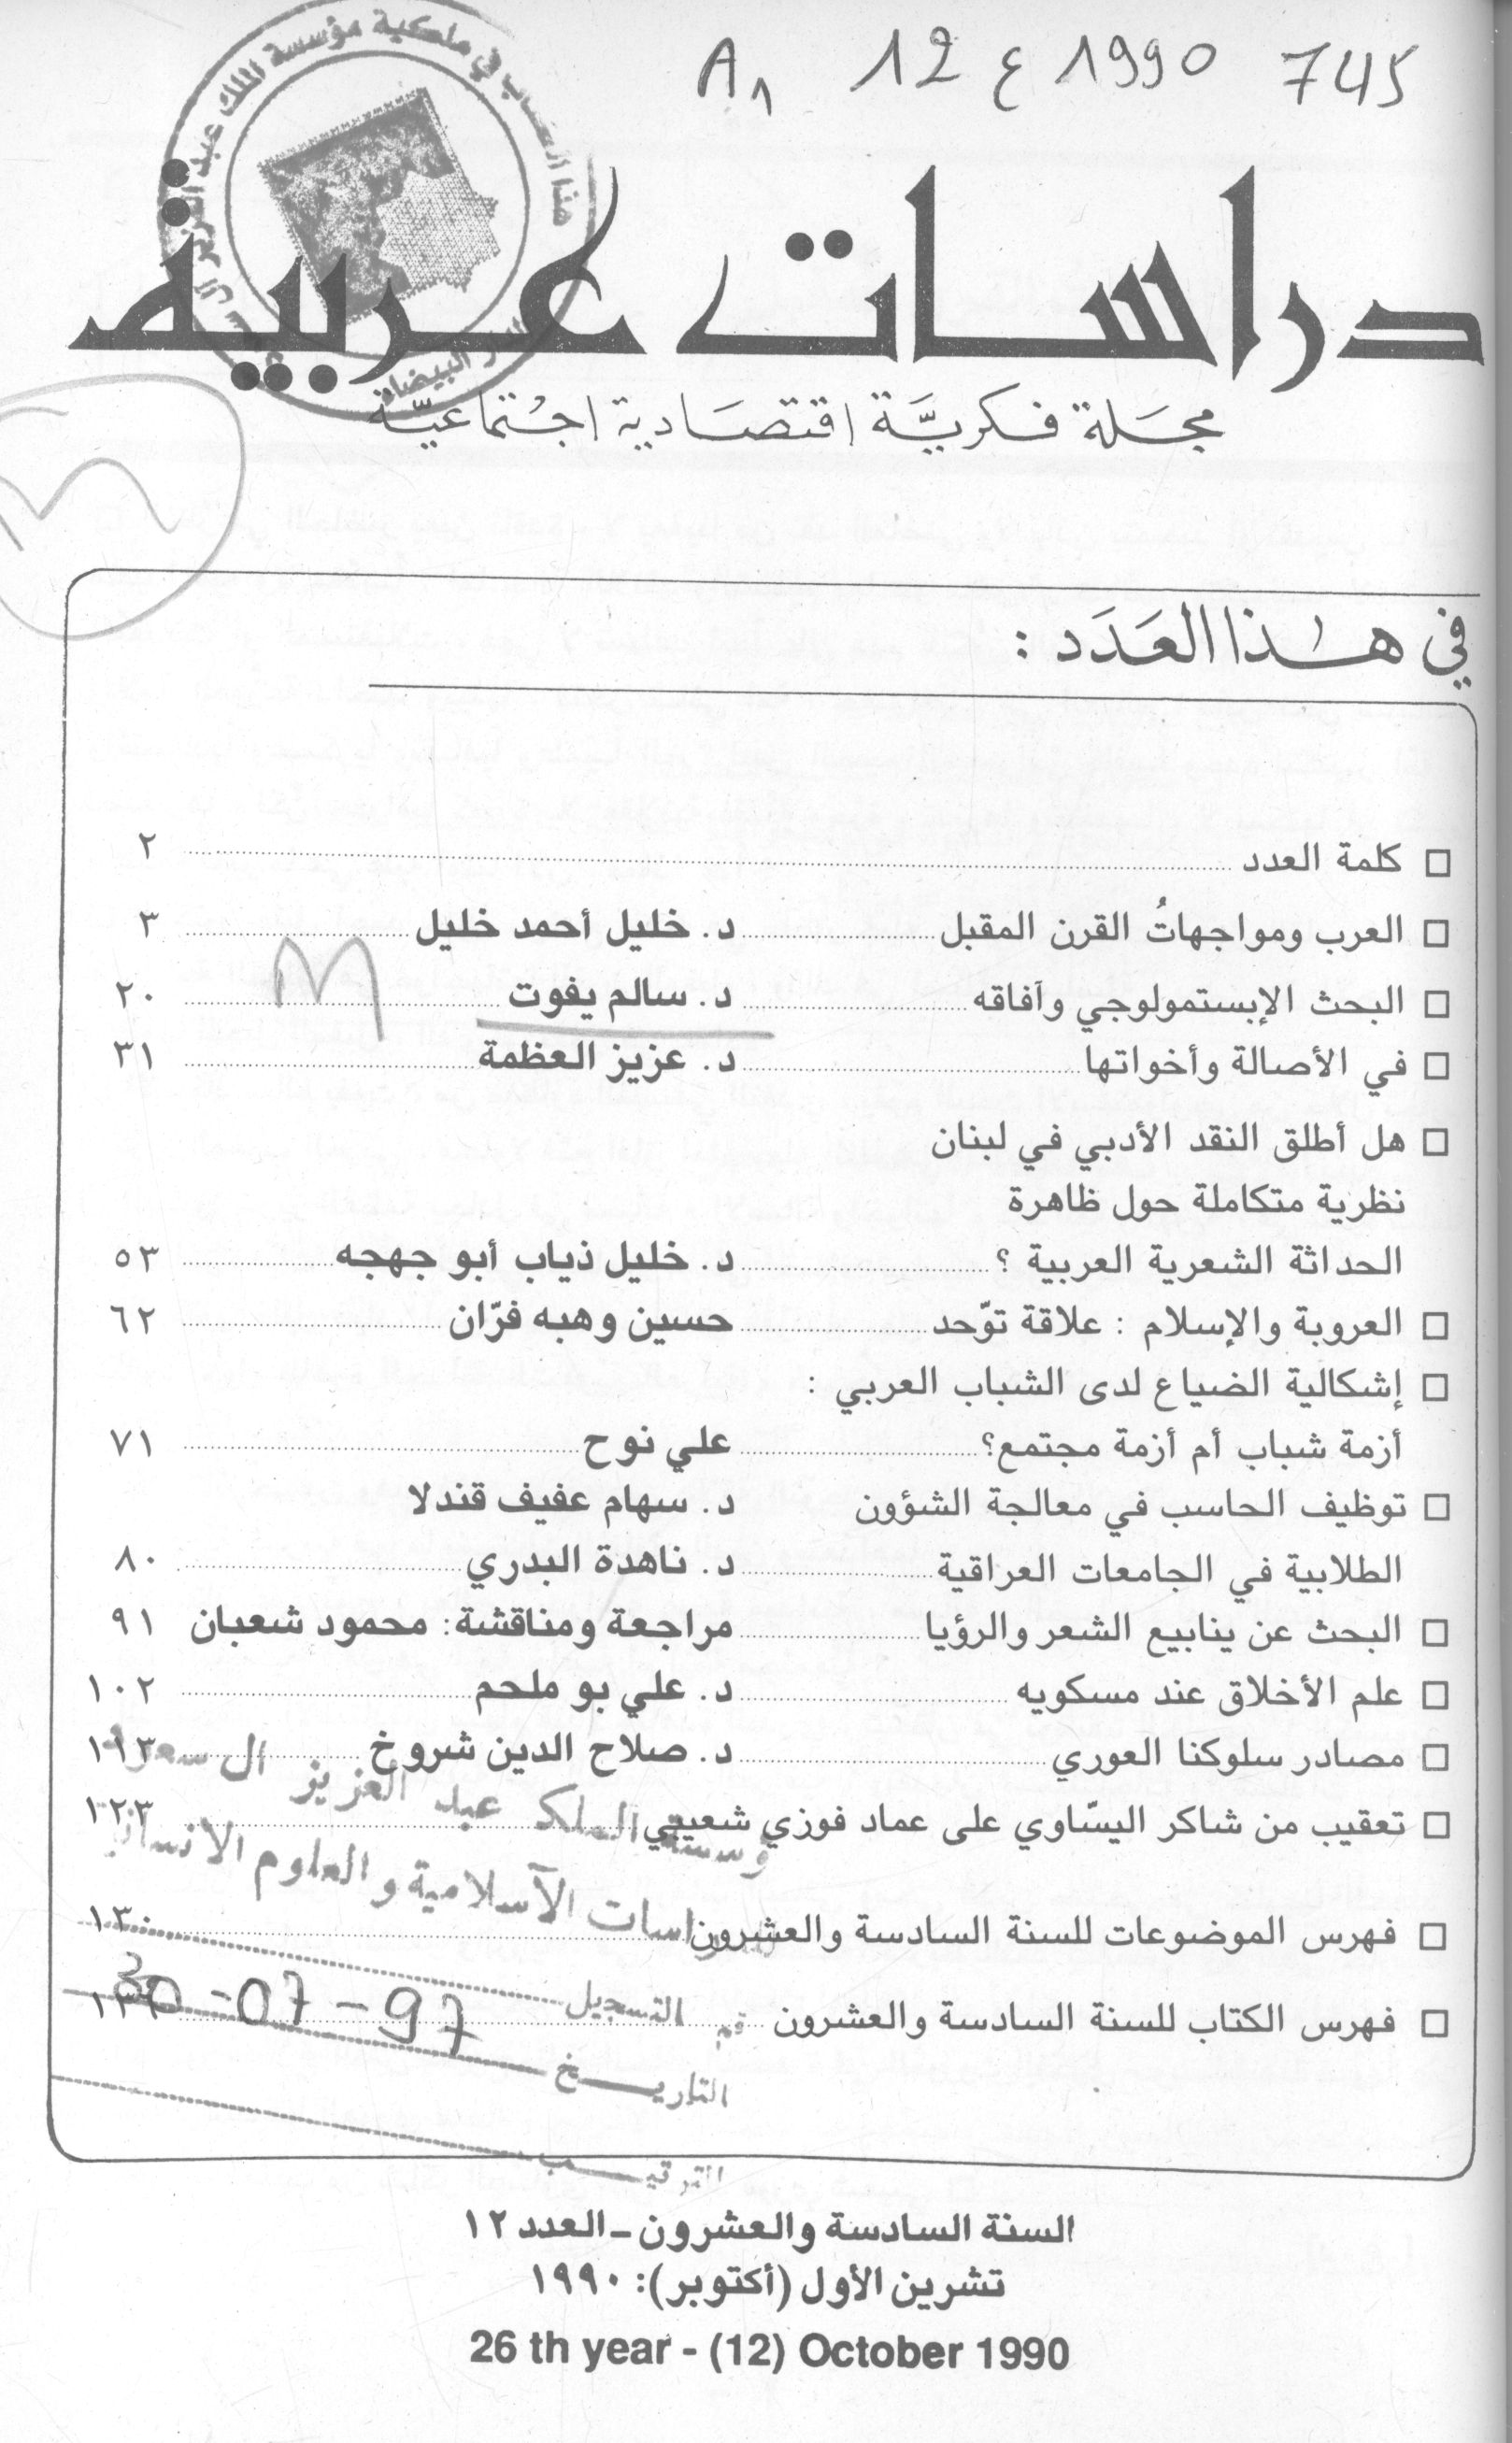 A١ 12 ع 1990 745
هذا الكتاب في ملكية مؤسسة الملك عبد العزيز
الدار البيضاء
دراسات عربية
مجَلة فكريَّة اقتصَادية اجْتماعيّة
في هٰذا العَدَد :
□ كلمة العدد ٢
□ العرب ومواجهاتُ القرن المقبل د. خليل أحمد خليل ٣
□ البحث الإبستمولوجي وآفاقه د. سالم يفوت ٢٠
□ في الأصالة وأخواتها د. عزيز العظمة ٣١
□ هل أطلق النقد الأدبي في لبنان
نظرية متكاملة حول ظاهرة
الحداثة الشعرية العربية ؟ د. خليل ذياب أبو جهجه ٥٣
□ العروبة والإسلام : علاقة توّحد حسين وهبه فرّان ٦٢
□ إشكالية الضياع لدى الشباب العربي :
أزمة شباب أم أزمة مجتمع؟ علي نوح ٧١
□ توظيف الحاسب في معالجة الشؤون د. سهام عفيف قندلا
الطلابية في الجامعات العراقية د. ناهدة البدري ٨٠
□ البحث عن ينابيع الشعر والرؤيا مراجعة ومناقشة: محمود شعبان ٩١
□ علم الأخلاق عند مسكويه د. علي بو ملحم ١٠٢
□ مصادر سلوكنا العوري د. صلاح الدين شروخ ١١٣
□ تعقيب من شاكر اليسّاوي على عماد فوزي شعيبي ١٢٣
□ فهرس الموضوعات للسنة السادسة والعشرون ١٣٠
□ فهرس الكتاب للسنة السادسة والعشرون
الملك عبد العزيز ال سعود
الآسلامية والعلوم الانسانية
التسجيل
التاريخ 30-07-97
الترتيب
السنة السادسة والعشرون ـ العدد ١٢
تشرين الأول (أكتوبر): ١٩٩٠
26 th year - (12) October 1990